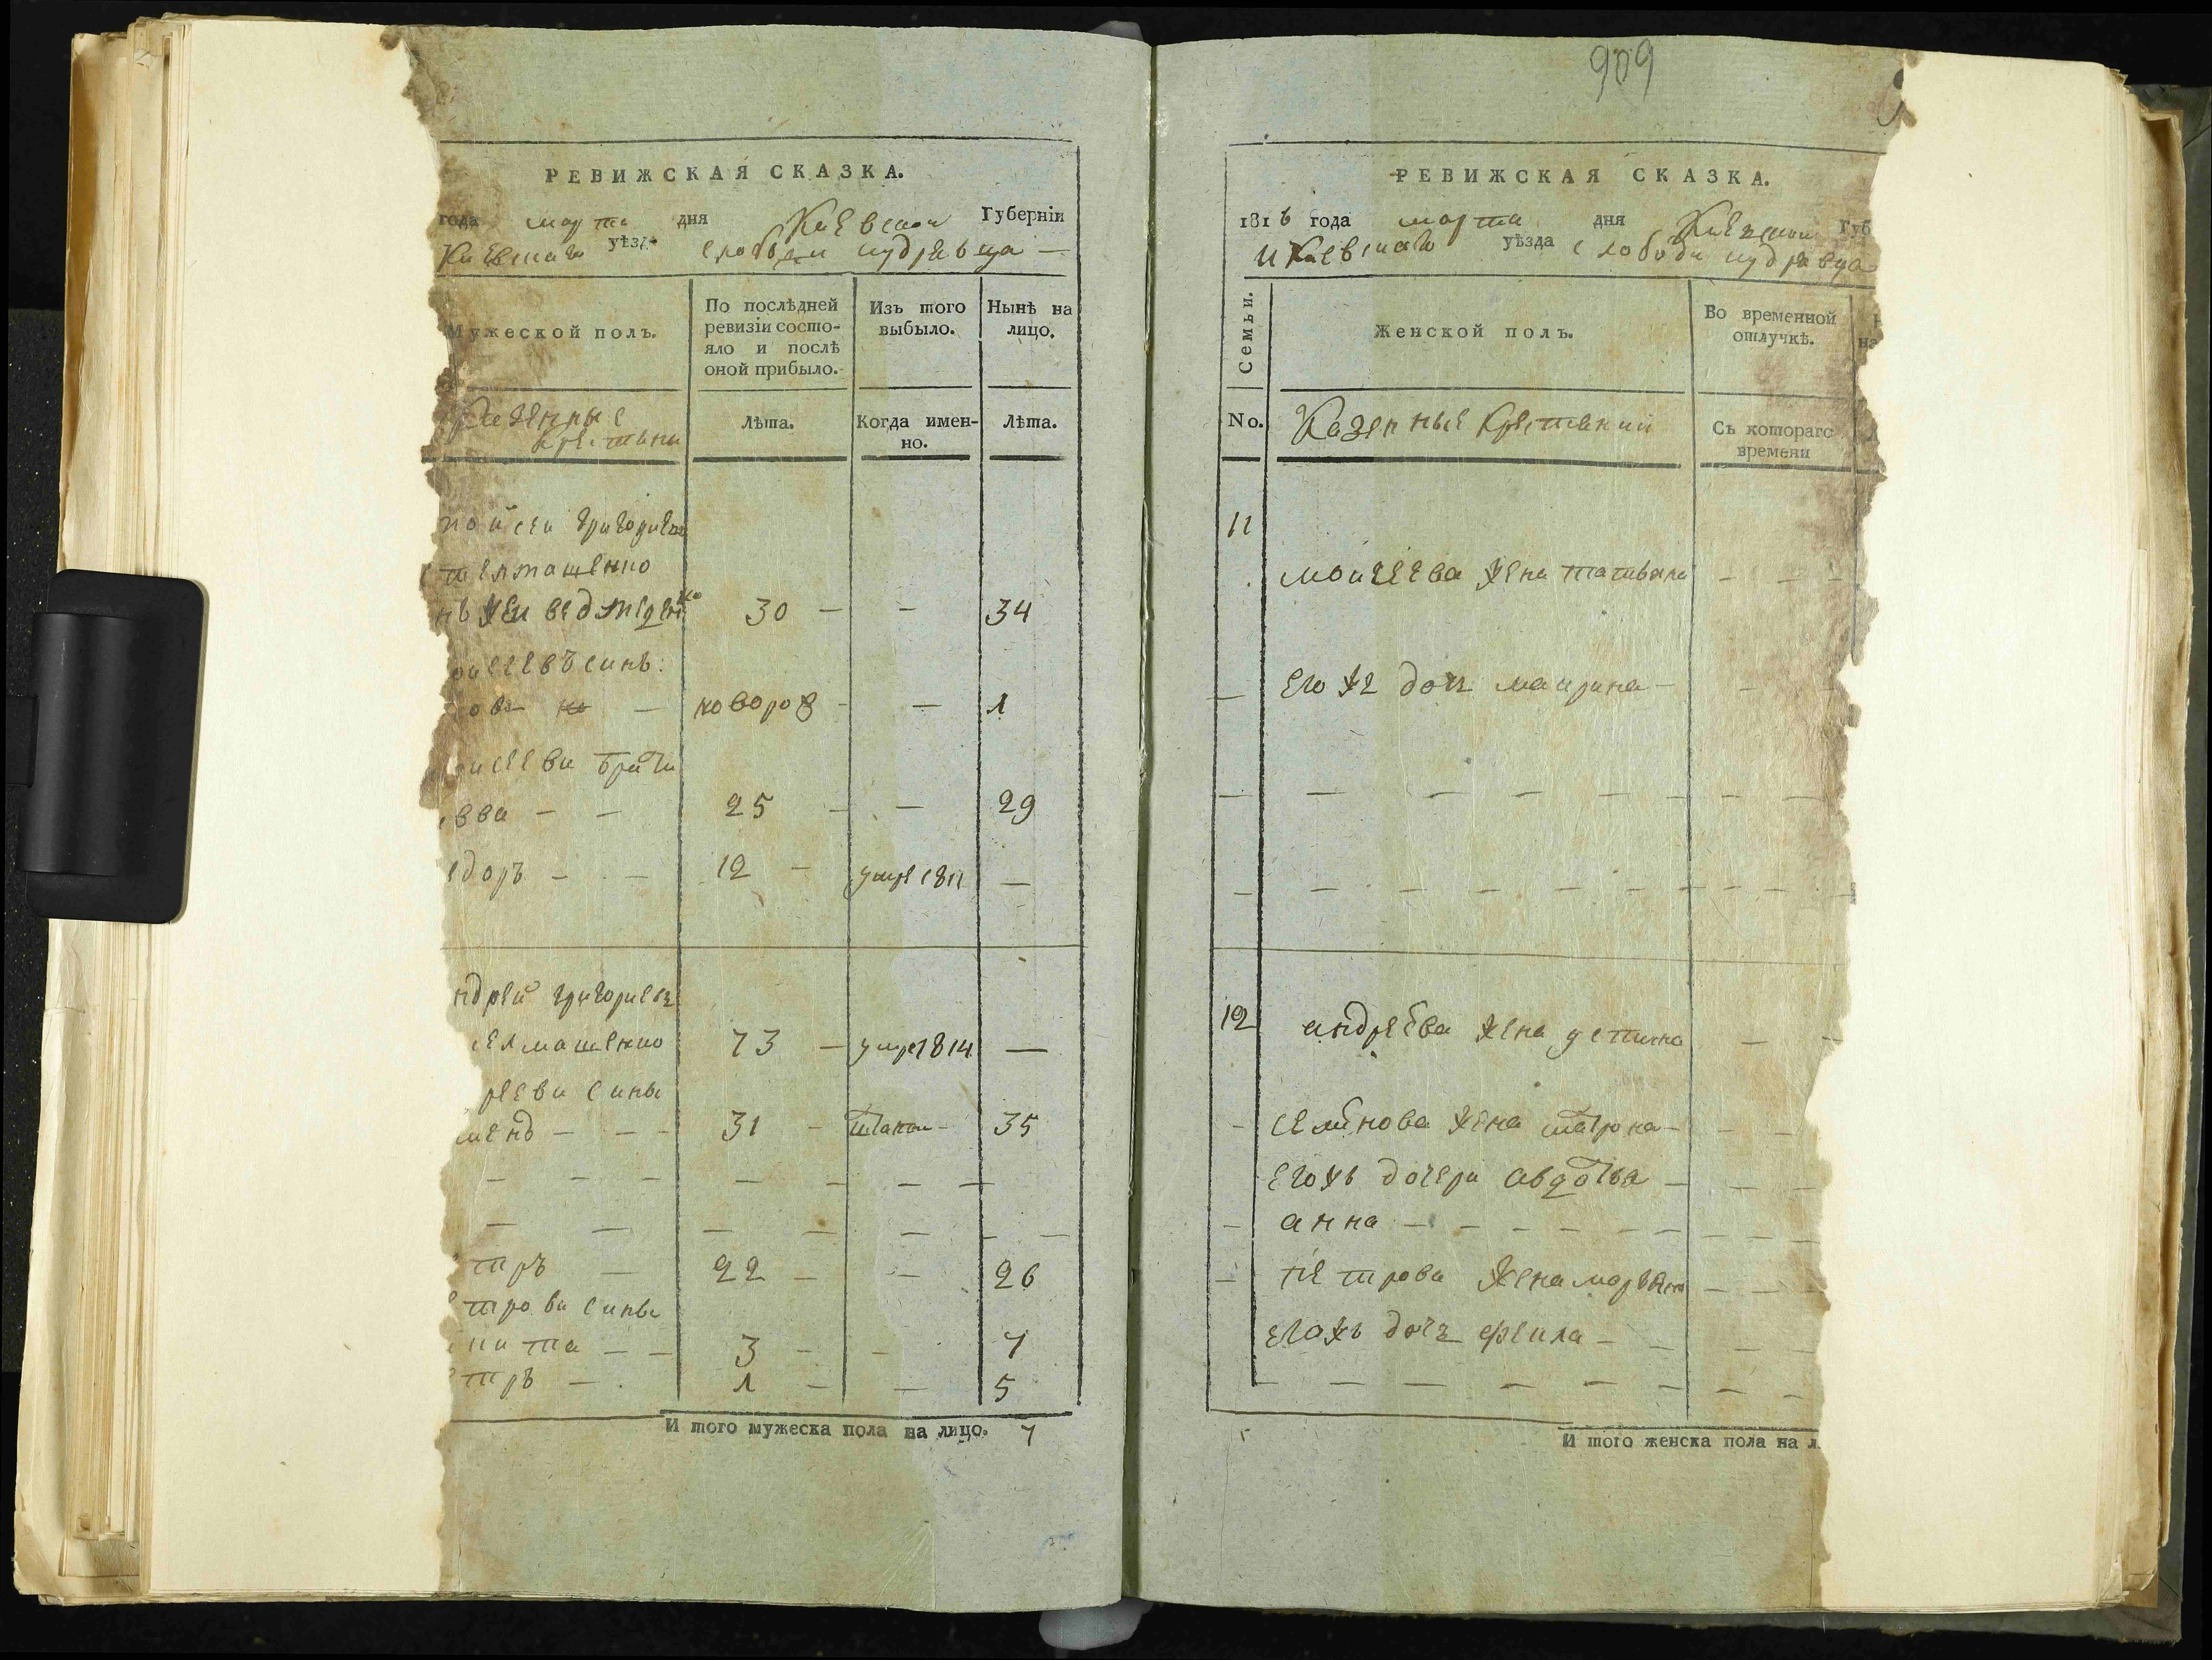 РЕВИЖСКАЯ СКАЗКА.
года марта дня Киевской Губерніи
Киевскаго уѣзда слободи кудрявца —
Мужеской полъ.
По послѣдней ревизіи состо-
яло и послѣ
оной прибыло.
Изъ того
выбыло.
Нынѣ на
лицо.
Казенные
Крестяни
Лѣта.
Когда имен-
но.
Лѣта.
григориевъ
30 — — 34
синъ
новорож — — 1
брати
вва — — 25 — — 29
едоръ — — 12 — умре 1811 —
ндрей григориевъ
елмашенко 73 — умре 1814 —
реви сины
менъ — — — 31 — 35
тръ — 22 — — 26
трови сины
кита — — 3 — — 7
тръ — 1 — — 5
И того мужеска пола на лицо. 7
909
РЕВИЖСКАЯ СКАЗКА.
1816 года марта дня Киевской Губ
и Киевскаго уѣзда слободи кудрявца
Семьи.
Женской полъ.
Во временной
отлучкѣ.
No.
Казенные Крестяний
Съ котораго
времени
11
моисеева жена татьяна — — —
— его же дочъ маирина — — —
12 андреева жена устина — —
— семенова жена матрона — — —
егожъ дочери авдотья — — —
— анна — — — — — — — — —
— петрова жена маръяна — — —
егожъ дочъ — — — —
И того женска пола на л